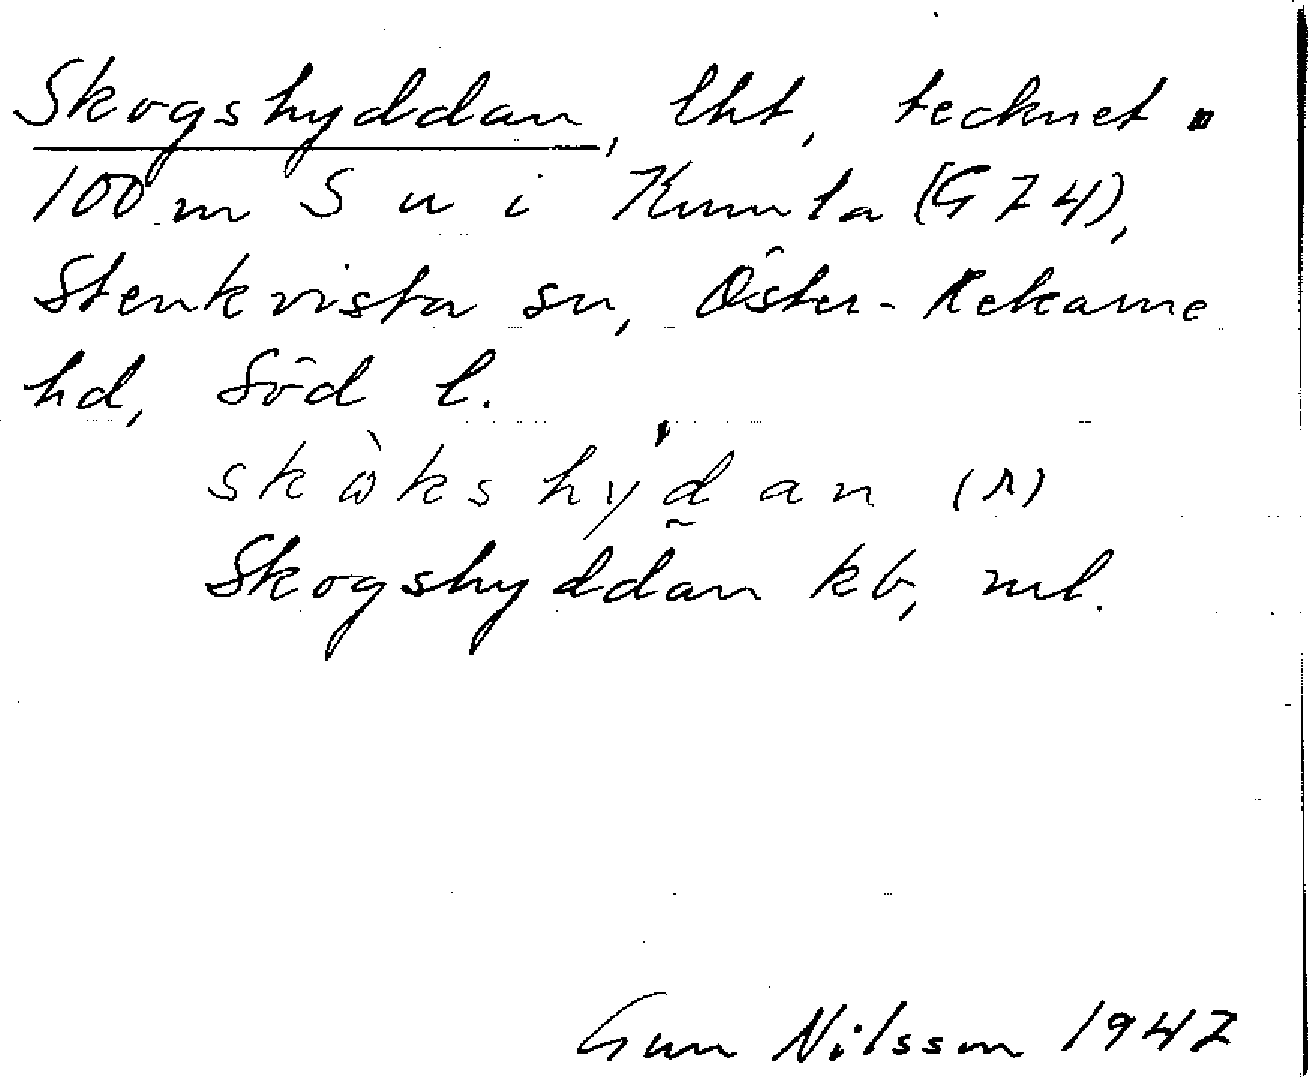 Skogshyddan, lht, tecknet ▫
100 m S u i Kumla (G 7 4),
Stenkvista sn, Öster-Rekarne
hd, Söd l.
skɷ̀kshy̍d̰an (ʌ)
Skogshyddan kb, ml.
Gun Nilsson 1947